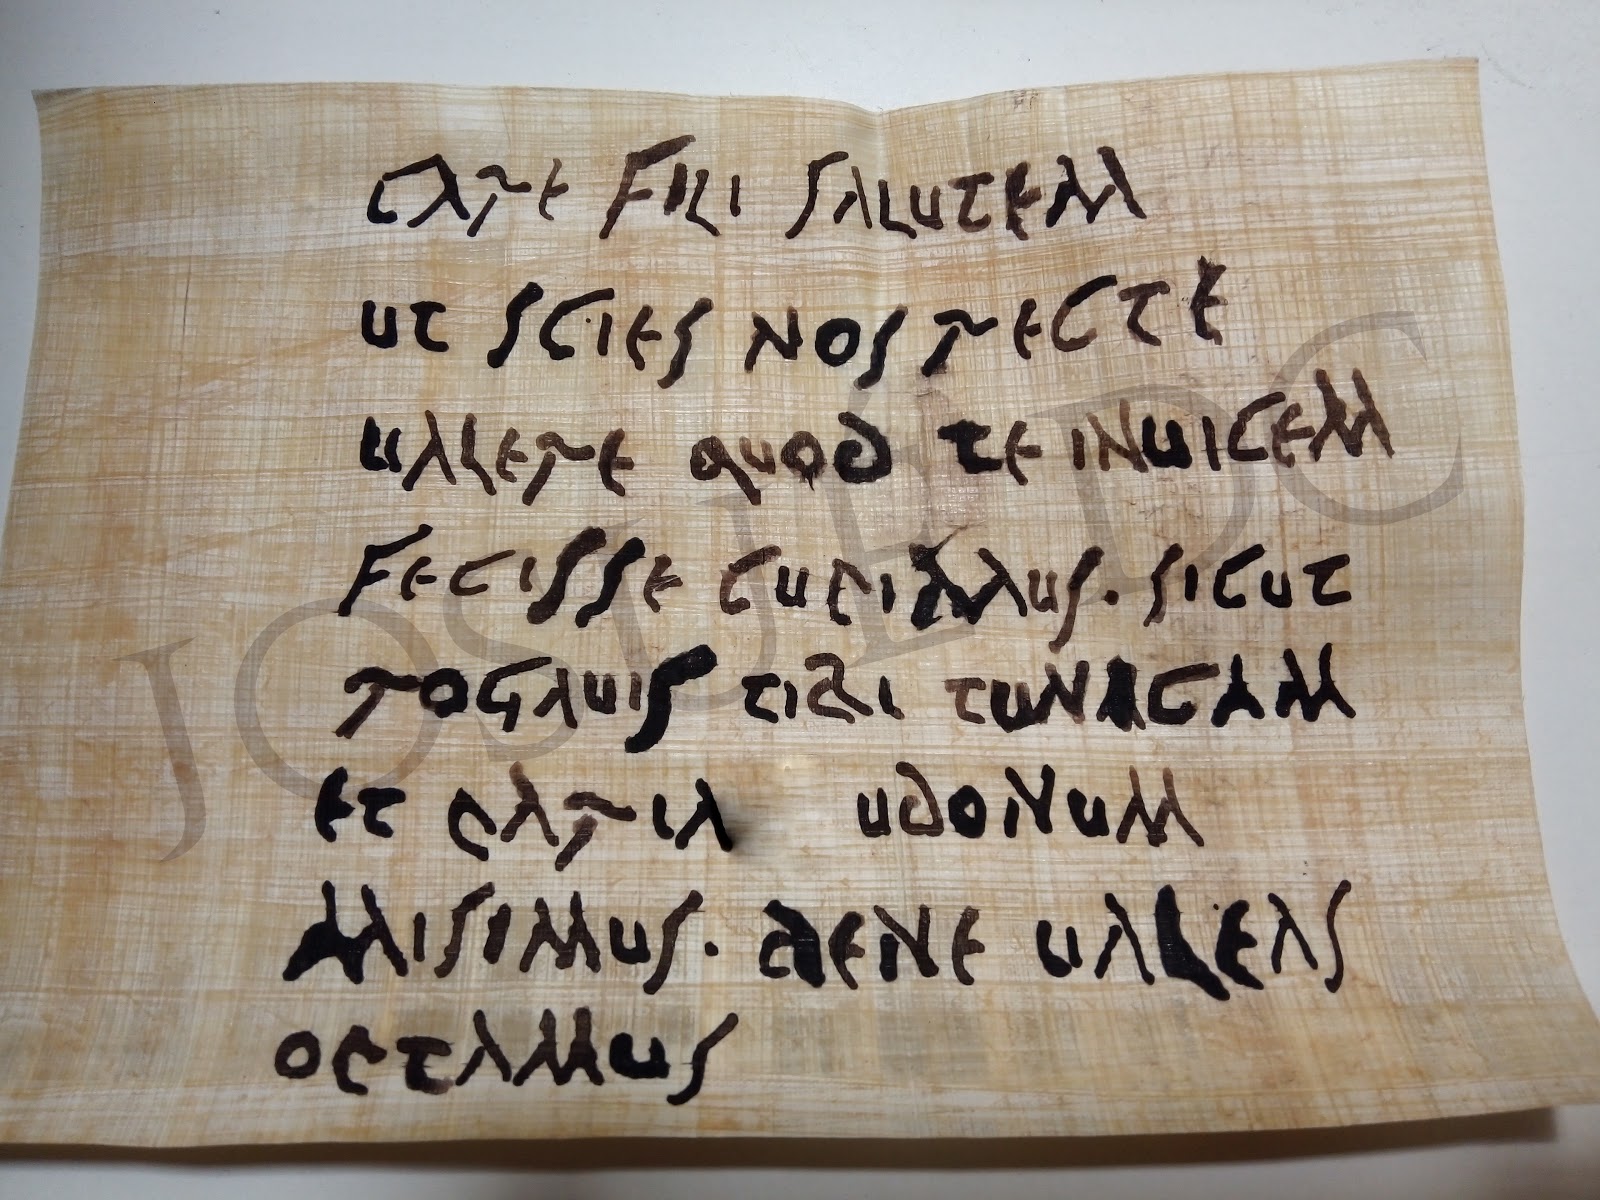 CARE FILI SALUTEM
UT SCIES NOS RECTE
UALERE QUOD TE INUICEM
FECISSE CUPIMUS. SICUT
ROGAUIS TIBI TUNICAM
ET PARIA UDONUM
MISIMUS. BENE UALEAS
OPTAMUS
JOSUÉ DC